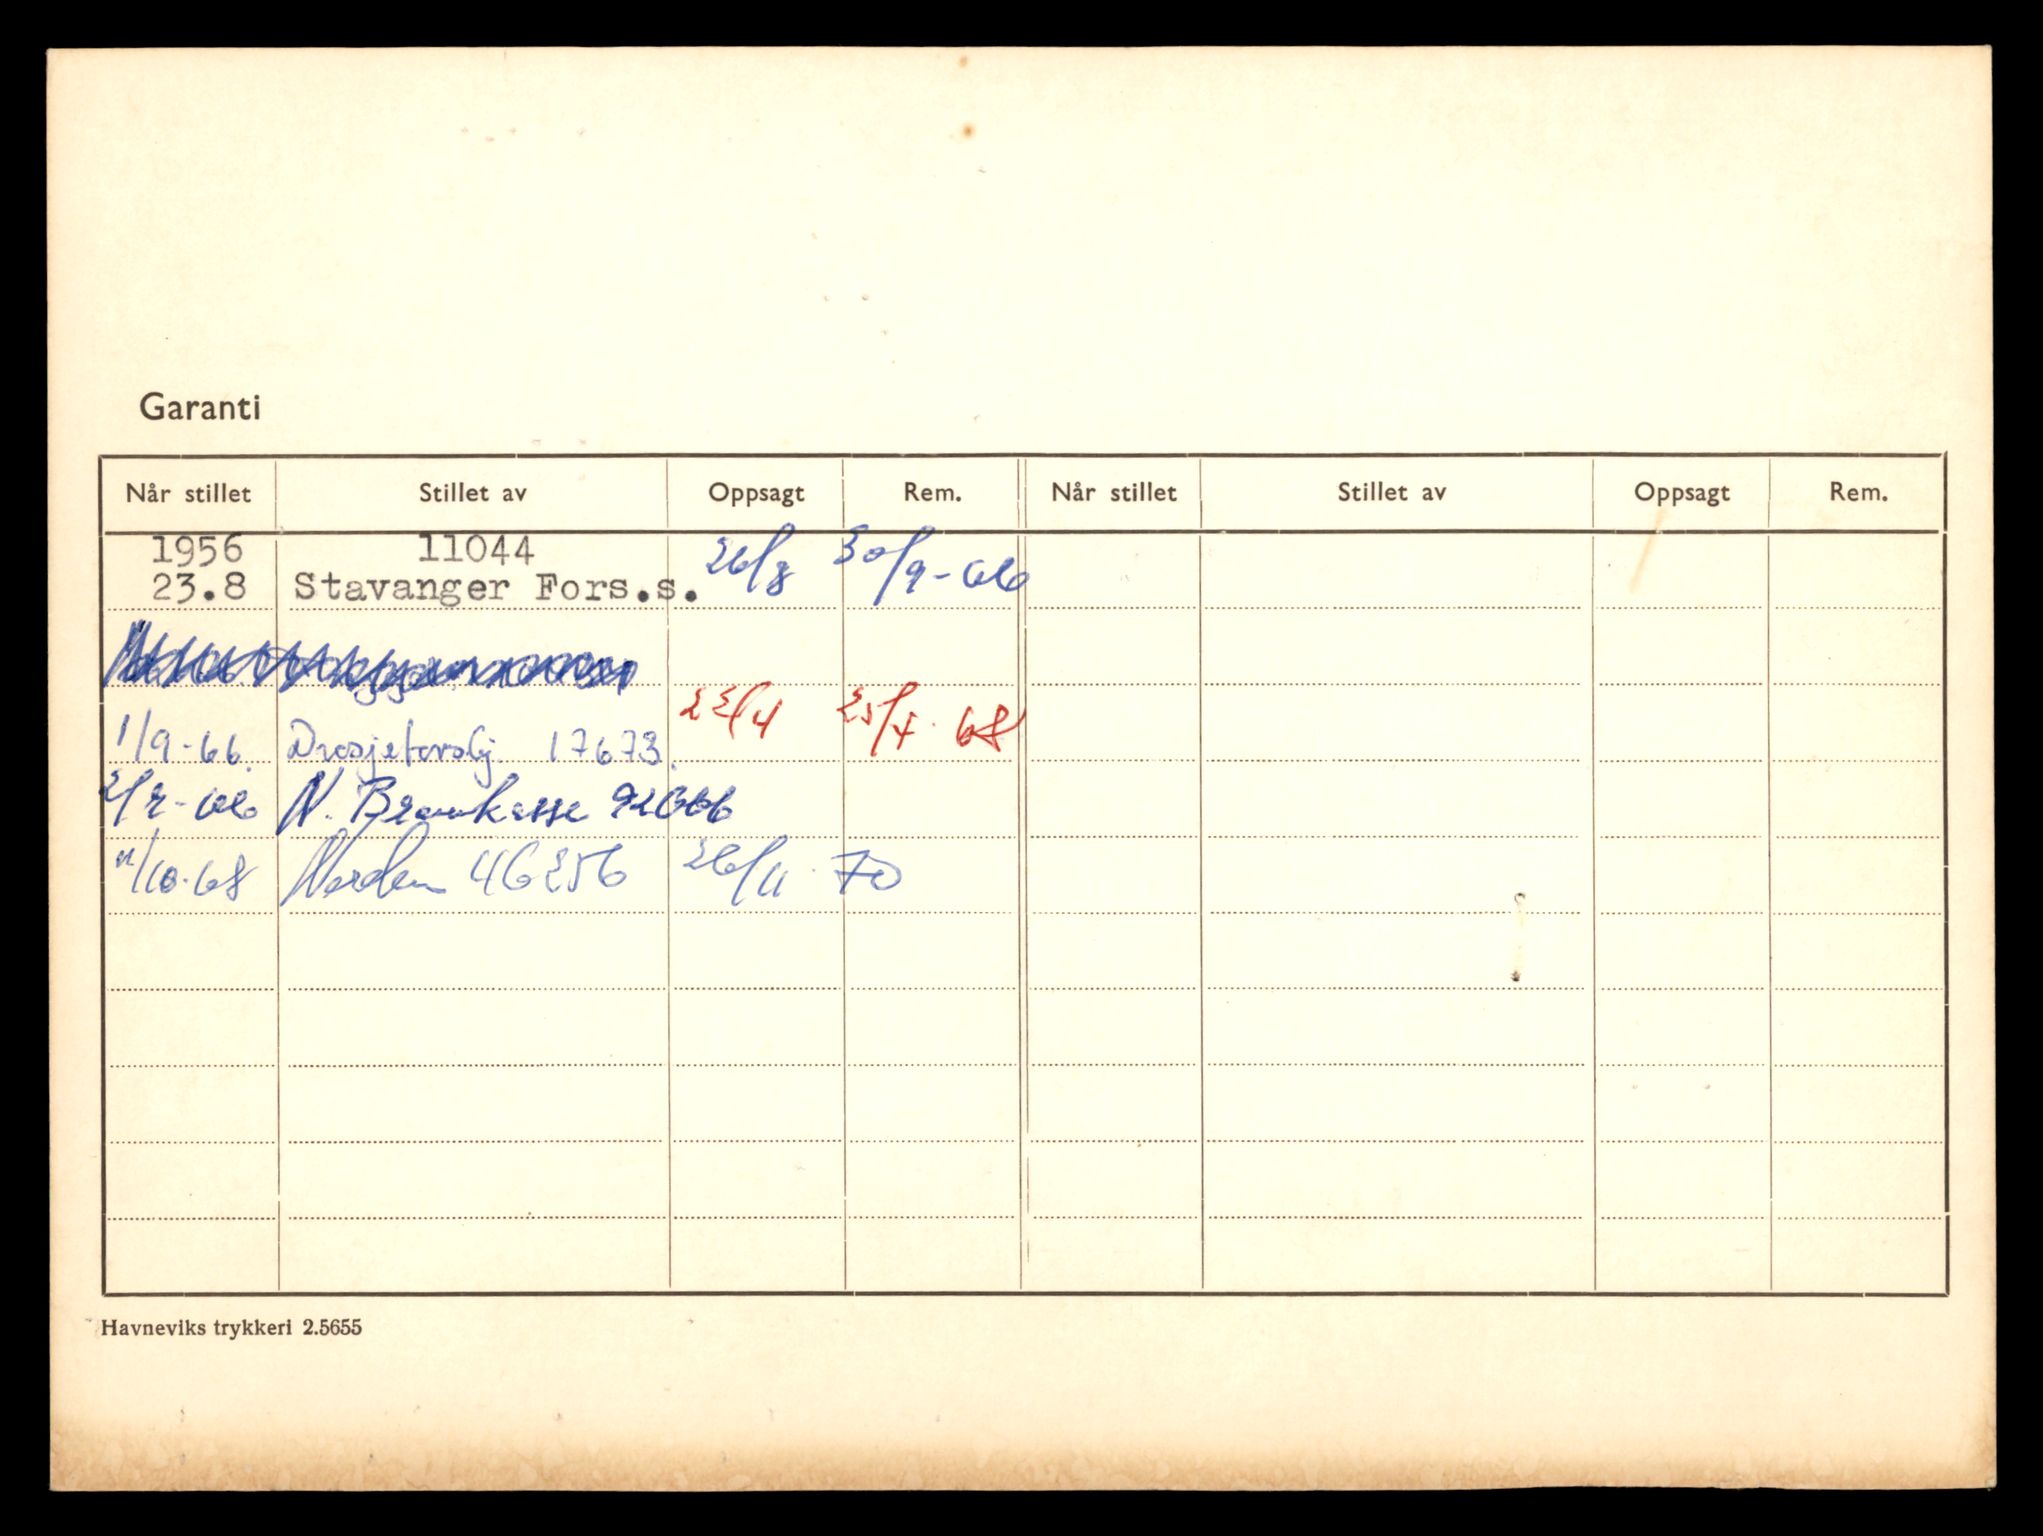 Garanti
Når stillet Stillet av Oppsagt Rem. Når stillet Stillet av Oppsagt Rem.
1956 11044
23.8 Stavanger Fors.s. 26/8 30/9-66
22/4 25/4. 68
1/9-66. Drosjeforsikj. 17673.
2/9-66 N. Brannkasse 92666
11/10-68 Norden 46256 26/11. 70
Havneviks trykkeri 2.5655